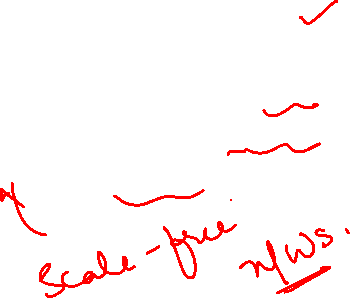 Scale-free n/ws.